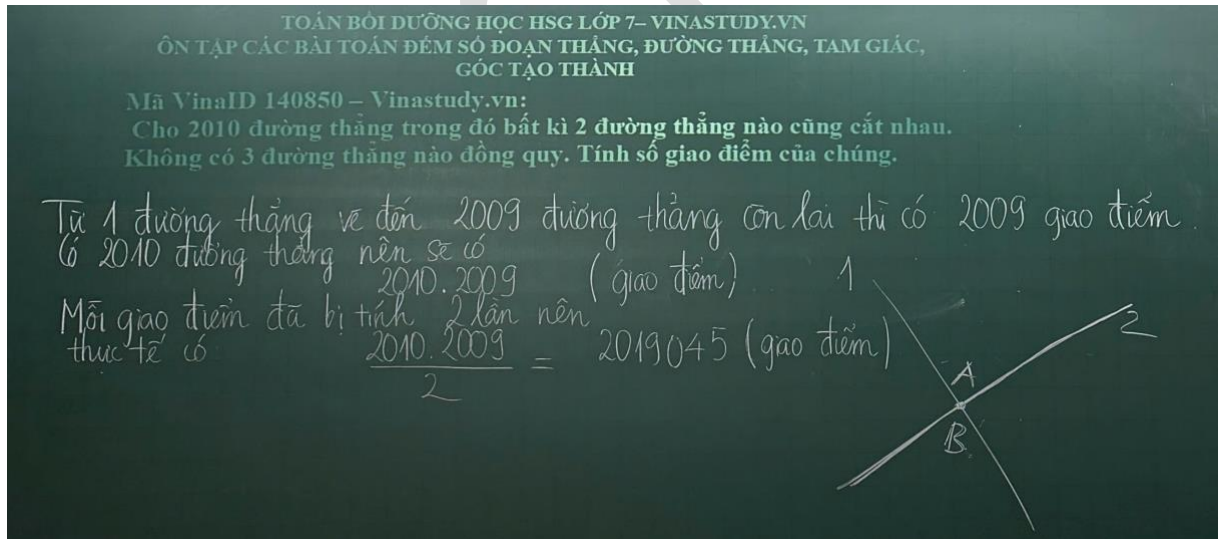 TOÁN BỒI DƯỠNG HỌC HSG LỚP 7– VINASTUDY.VN
ÔN TẬP CÁC BÀI TOÁN ĐẾM SỐ ĐOẠN THẲNG, ĐƯỜNG THẲNG, TAM GIÁC,
GÓC TẠO THÀNH
Mã VinaID 140850 – Vinastudy.vn:
Cho 2010 đường thẳng trong đó bất kì 2 đường thẳng nào cũng cắt nhau.
Không có 3 đường thẳng nào đồng quy. Tính số giao điểm của chúng.
Từ 1 đường thẳng vẽ đến 2009 đường thẳng còn lại thì có 2009 giao điểm.
Có 2010 đường thẳng nên sẽ có
2010.2009 (giao điểm)
Mỗi giao điểm đã bị tính 2 lần nên
thực tế có 2010.2009 / 2 = 2019045 (giao điểm)
1
2
A
B